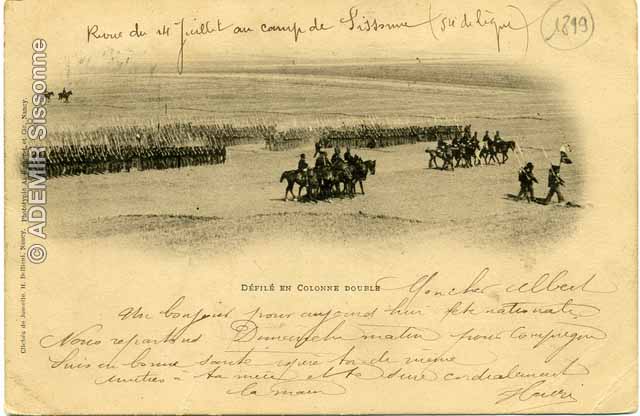 Revue du 14 Juillet au camp de Sissonne (54 de ligne)
1899
© ADEMIR Sissonne
Clichés de Jumelle. H. Bellieni, Nancy. Phototypie A. et Cie, Nancy.
DÉFILÉ EN COLONNE DOUBLE
Mon cher Albert
Un bonjour pour aujourd'hui fête nationale
Nous repartons Dimanche matin pour Compiègne
Suis en bonne santé espère toi de même
amitiés à ta mère et te serre cordialement
la main
Henri